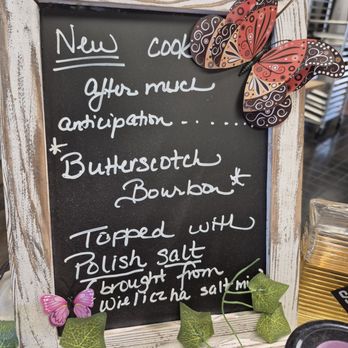 New cook
after much
anticipation - - . . . . .
*Butterscotch
Bourbon*
Topped with
Polish salt
brought from
Wieliczha salt mi